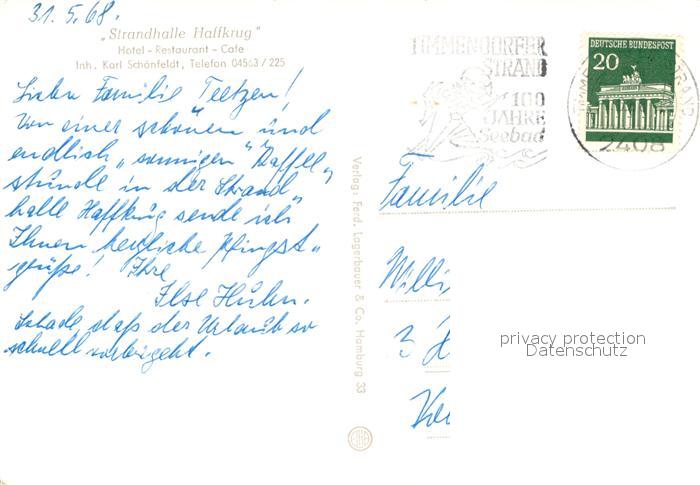 31.5.68.
„Strandhalle Haffkrug"
Hotel - Restaurant - Cafe
Inh. Karl Schönfeldt, Telefon 04563 / 225
Liebe Familie Teetzen!
Von einer schönen und
endlich „sonnigen" Kaffee„
stunde in der Strand„
halle Haffkrug sende ich
Ihnen herzliche Pfingst„
grüße! Ihre
Ilse Huhn.
Schade, daß der Urlaub so
schnell vorbeigeht.
Verlag: Ferd. Lagerbauer & Co. Hamburg 33
TIMMENDORFER
STRAND
100
JAHRE
Seebad
DEUTSCHE BUNDESPOST
20
2408
Familie
Willi
privacy protection
Datenschutz